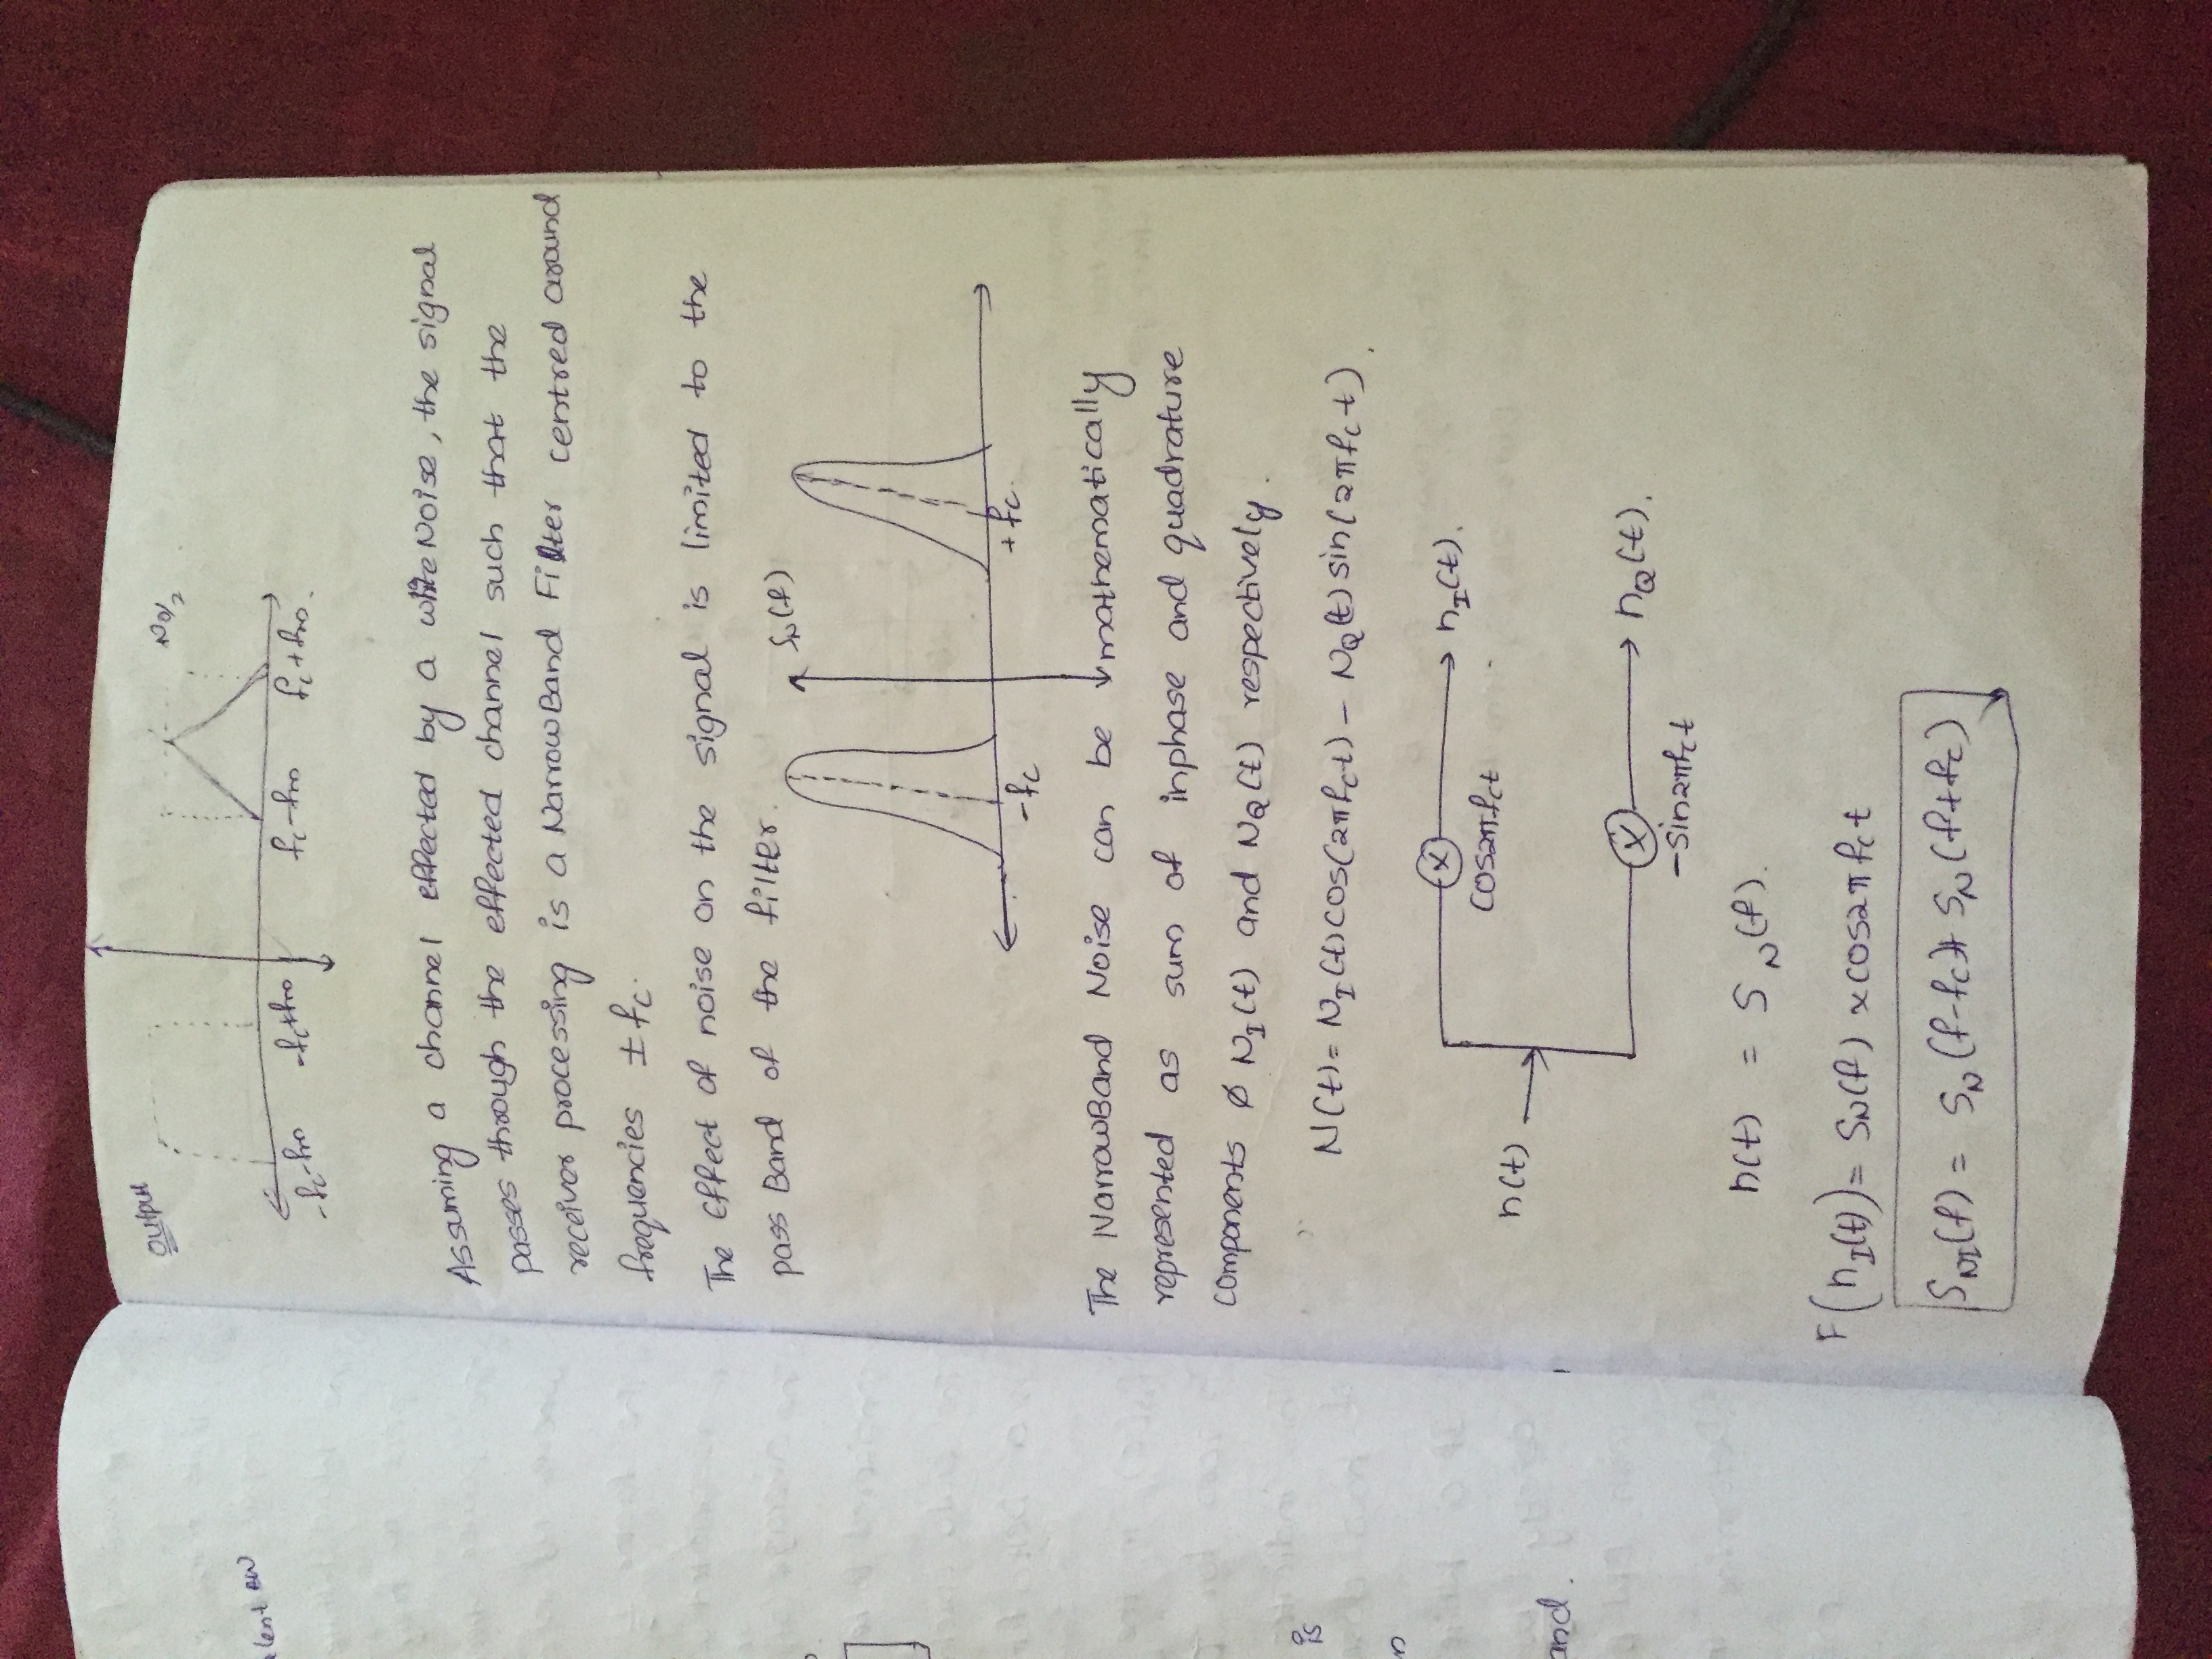 alent BW
is
and.
Output
No/2
-fc-fm -fc+fm fc-fm fc+fm.
Assuming a channel effected by a white Noise, the signal
passes through the effected channel such that the
receiver processing is a NarrowBand Filter centred around
frequencies ± fc.
The Effect of noise on the signal is limited to the
pass Band of the filter.
SN(f)
-fc +fc.
The NarrowBand Noise can be mathematically
represented as sum of inphase and quadrature
components NI(t) and NQ(t) respectively.
N(t)= NI(t)cos(2πfct) - NQ(t) sin(2πfct).
nI(t).
cos2πfct
n(t)
nQ(t).
-sin2πfct
n(t) = SN(f).
F(nI(t)) = SN(f) x cos2πfct
SNI(f) = SN(f-fc) + SN(f+fc)